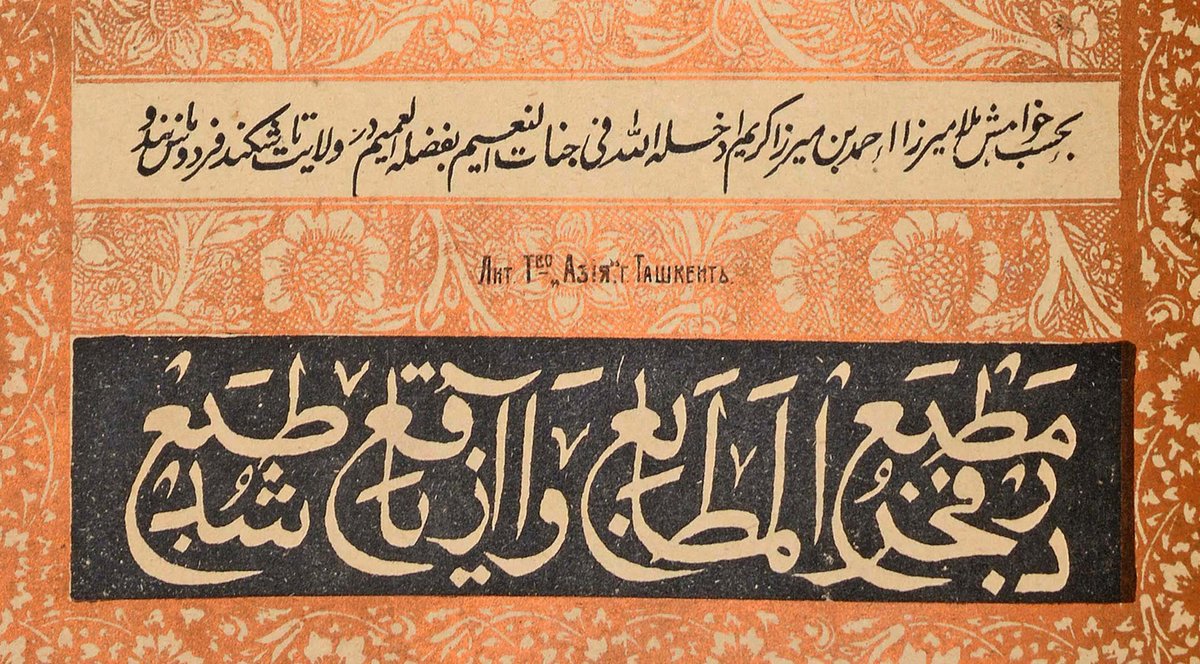 بحسب خواهش ملا میرزا احمد بن میرزا کریم ادخله الله فی جنات النعیم بفضله العمیم در ولایت تاشکند فردوس مانند
Лит. Тво „Азія“ г. Ташкентъ.
در مطبع فخر المطابع طبع شد